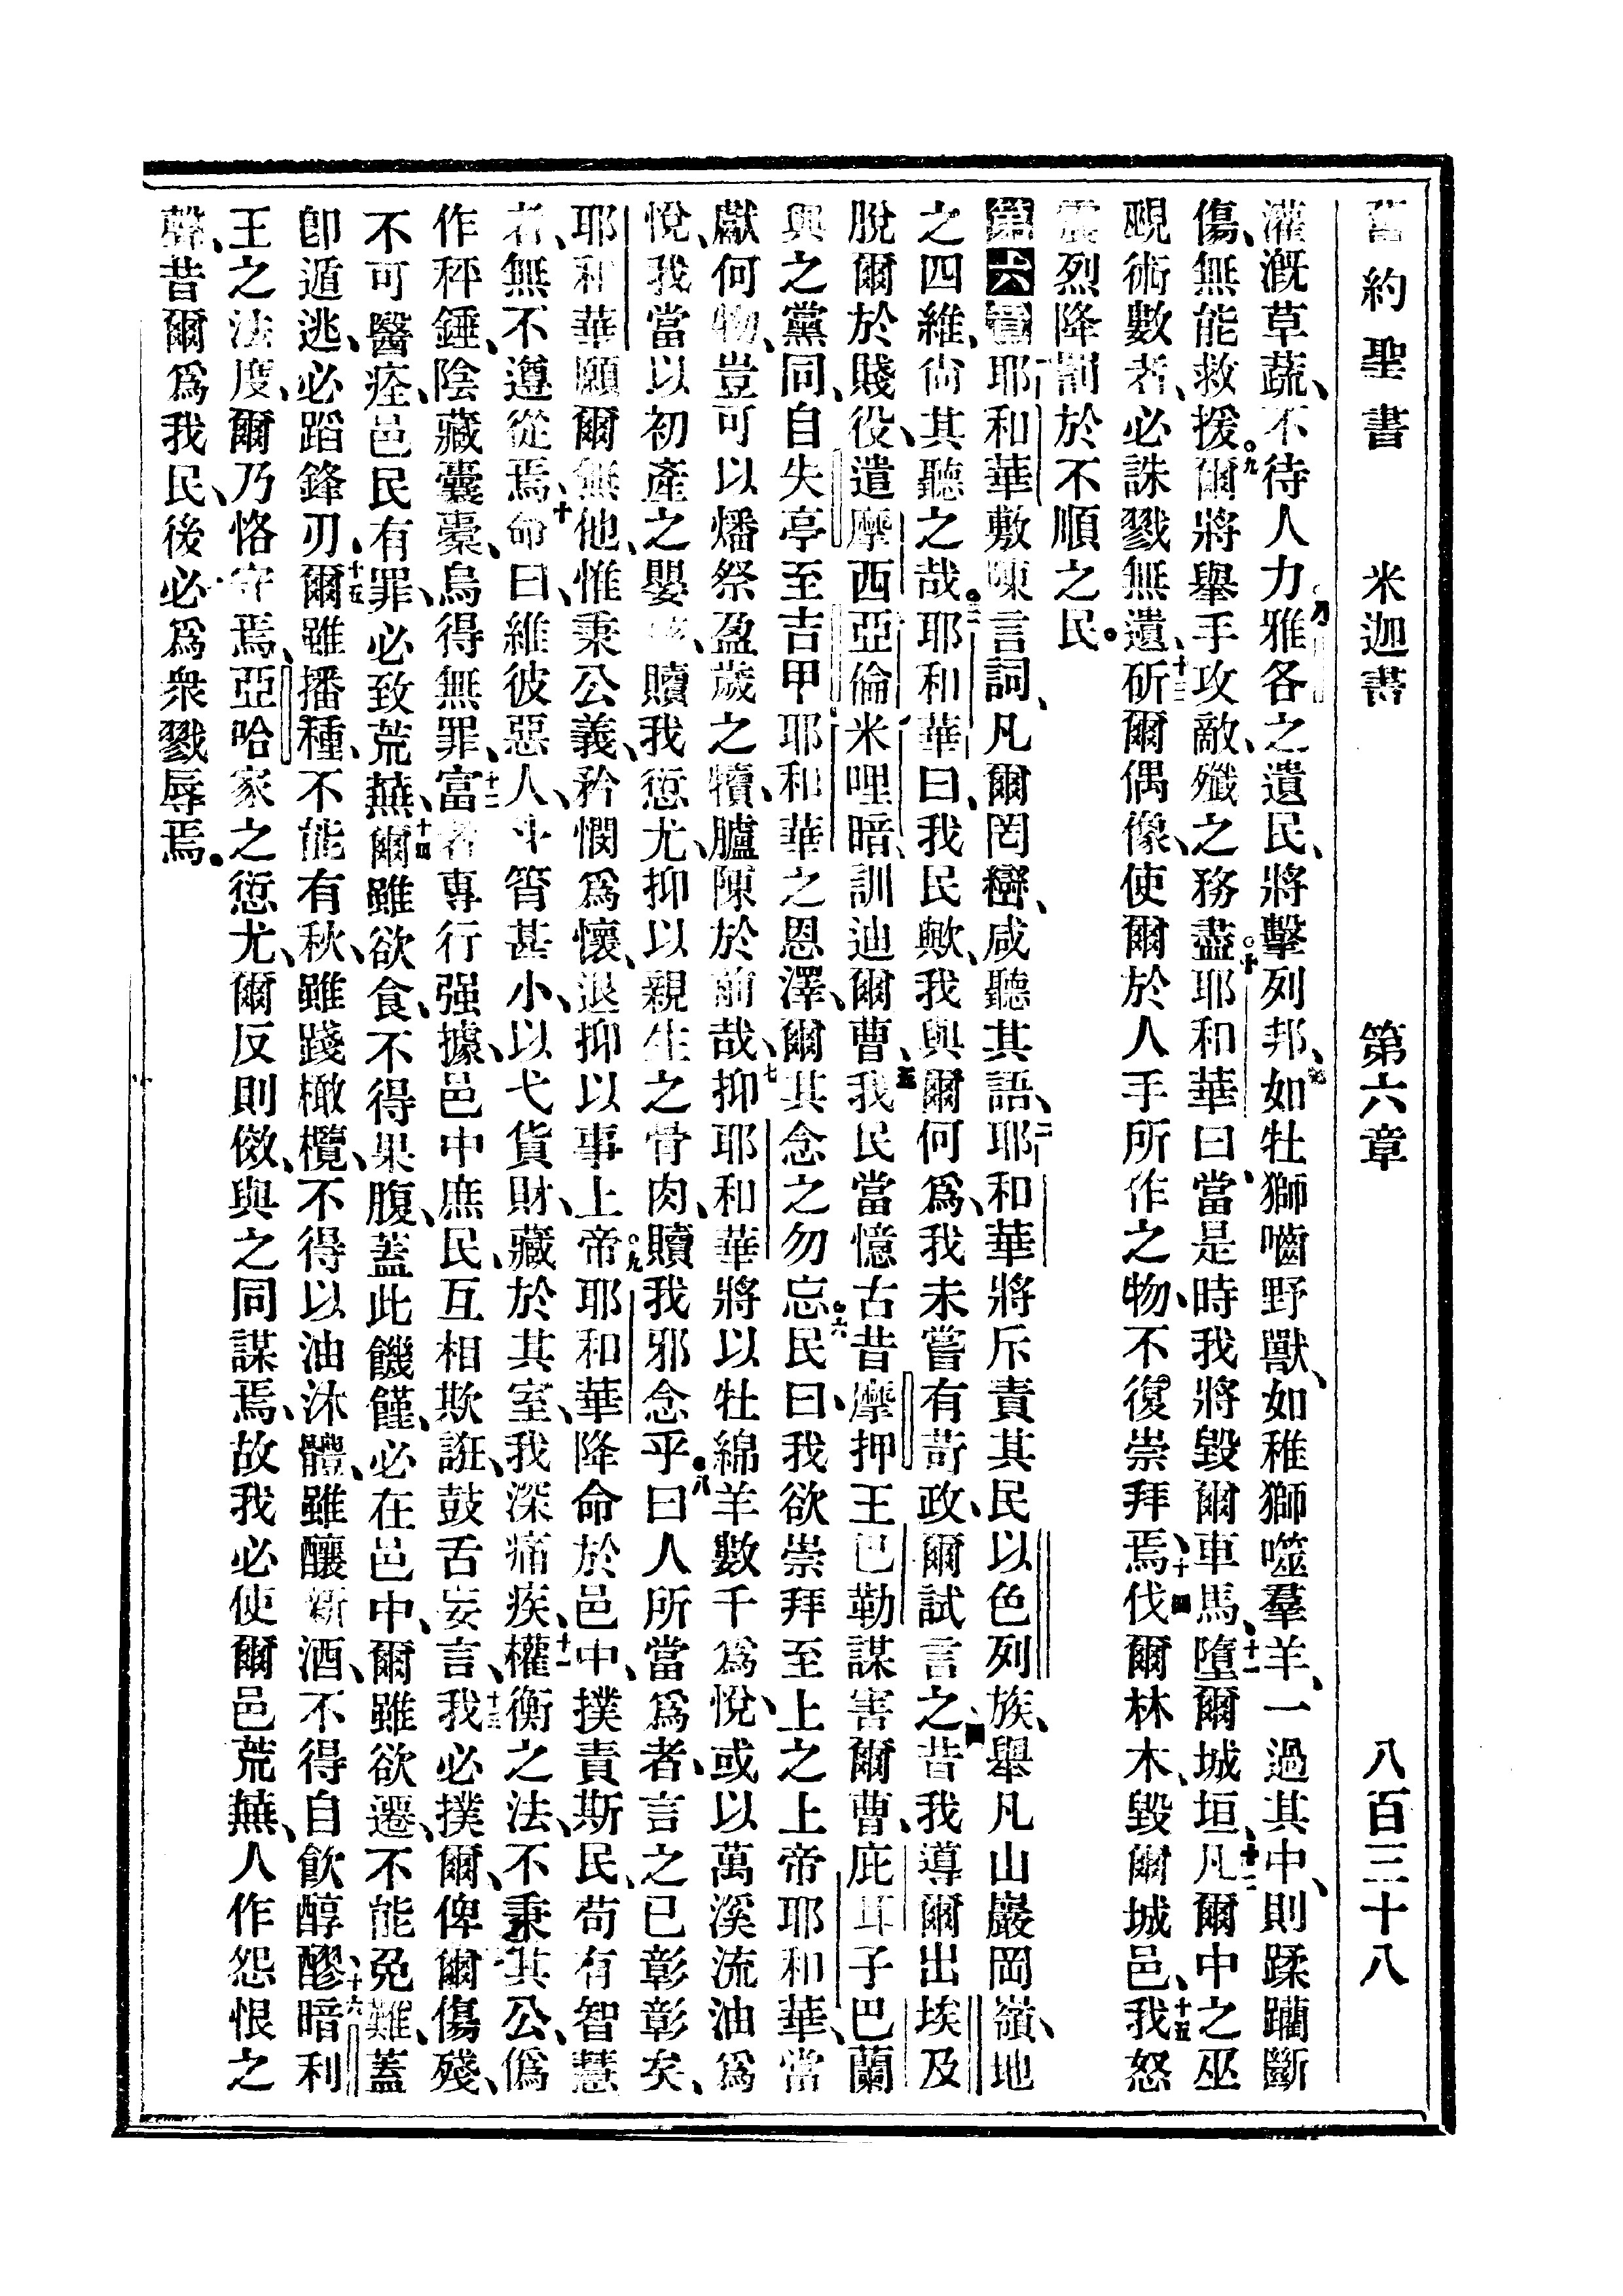 舊約聖書 米迦書 第六章 八百三十八
灌溉草蔬、不待人力、雅各之遺民、將擊列邦、如牡獅嚙野獸、如稚獅噬羣羊、一過其中、則蹂躪斷
傷、無能救援。九爾將舉手攻敵、殲之務盡。十耶和華曰、當是時我將毀爾車馬、十一墮爾城垣、十二凡爾中之巫
覡術數者、必誅戮無遺、十三斫爾偶像、使爾於人手所作之物、不復崇拜焉、十四伐爾林木、毀爾城邑、十五我怒
震烈、降罰於不順之民。
第六章 一耶和華敷陳言詞、凡爾罔巒、咸聽其語、二耶和華將斥責其民以色列族、舉凡山巖岡嶺、地
之四維、尙其聽之哉。三耶和華曰、我民歟、我與爾何爲、我未嘗有苛政、爾試言之、四昔我導爾出埃及
脫爾於賤役、遣摩西亞倫米哩暗、訓迪爾曹、五我民當憶古昔摩押王巴勒謀害爾曹、庇耳子巴蘭
與之黨同、自失亭至吉甲、耶和華之恩澤、爾其念之勿忘。六民曰、我欲崇拜至上之上帝耶和華、當
獻何物、豈可以燔祭盈歲之犢、臚陳於前哉、七抑耶和華將以牡綿羊數千爲悅、或以萬溪流油爲
悅、我當以初產之嬰、贖我愆尤、抑以親生之骨肉、贖我邪念乎。八曰、人所當爲者、言之已彰彰矣、
耶和華願爾無他、惟秉公義、矜憫爲懷、退抑以事上帝。九耶和華降命於邑中、撲責斯民、苟有智慧
者、無不遵從焉、十命曰、維彼惡人、斗筲甚小、以弋貨財、藏於其室、我深痛疾、十一權衡之法、不秉其公、僞
作秤錘、陰藏囊橐、烏得無罪、十二富者專行强據、邑中庶民、互相欺誑、鼓舌妄言、十三我必撲爾、俾爾傷殘、
不可醫痊、邑民有罪、必致荒蕪、十四爾雖欲食、不得果腹、蓋此饑饉、必在邑中、爾雖欲遷、不能免難、蓋
卽遁逃、必蹈鋒刃、十五爾雖播種、不能有秋、雖踐橄欖、不得以油沐體、雖釀新酒、不得自飮醇醪、十六暗利
王之法度、爾乃恪守焉、亞哈家之愆尤、爾反則傚、與之同謀焉、故我必使爾邑荒蕪、人作怨恨之
聲、昔爾爲我民、後必爲衆戮辱焉。